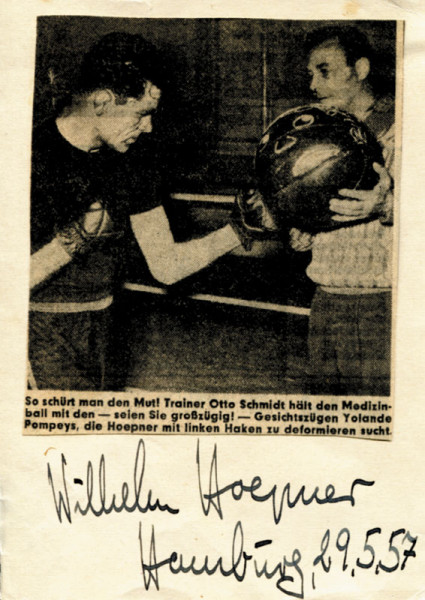 So schürt man den Mut! Trainer Otto Schmidt hält den Medizin-
ball mit den — seien Sie großzügig! — Gesichtszügen Yolande
Pompeys, die Hoepner mit linken Haken zu deformieren sucht.
Wilhelm Hoepner
Hamburg, 29,5,57